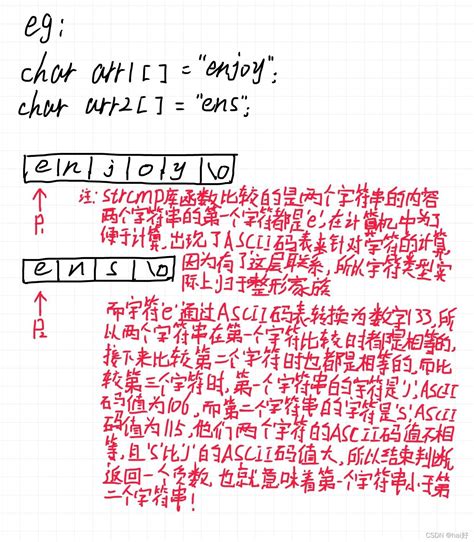 eg:
char arr1[] = "enjoy";
char arr2[] = "ens";
e n j o y \0
P1
注: strcmp库函数比较的是两个字符串的内容
两个字符串的第一个字符都是'e',在计算机中为了
便于计算,出现了ASCII码表来针对字符的计算
因为有了这层联系,所以字符类型实
际上归于整形家族
e n s \0
P2
而字符'e'通过ASCII码表转换为数字133,所
以两个字符串在第一个字符比较时都是相等的,
接下来比较第二个字符时也都是相等的,而比
较第三个字符时,第一个字符串的字符是'j',ASCII
码值为106,而第二个字符串的字符是's',ASCII
码值为115,他们两个字符的ASCII码值不相
等,且's'比'j'的ASCII码值大,所以结束判断
返回一个负数,也就意味着第一个字符串小于第
二个字符串!
CSDN @hai好